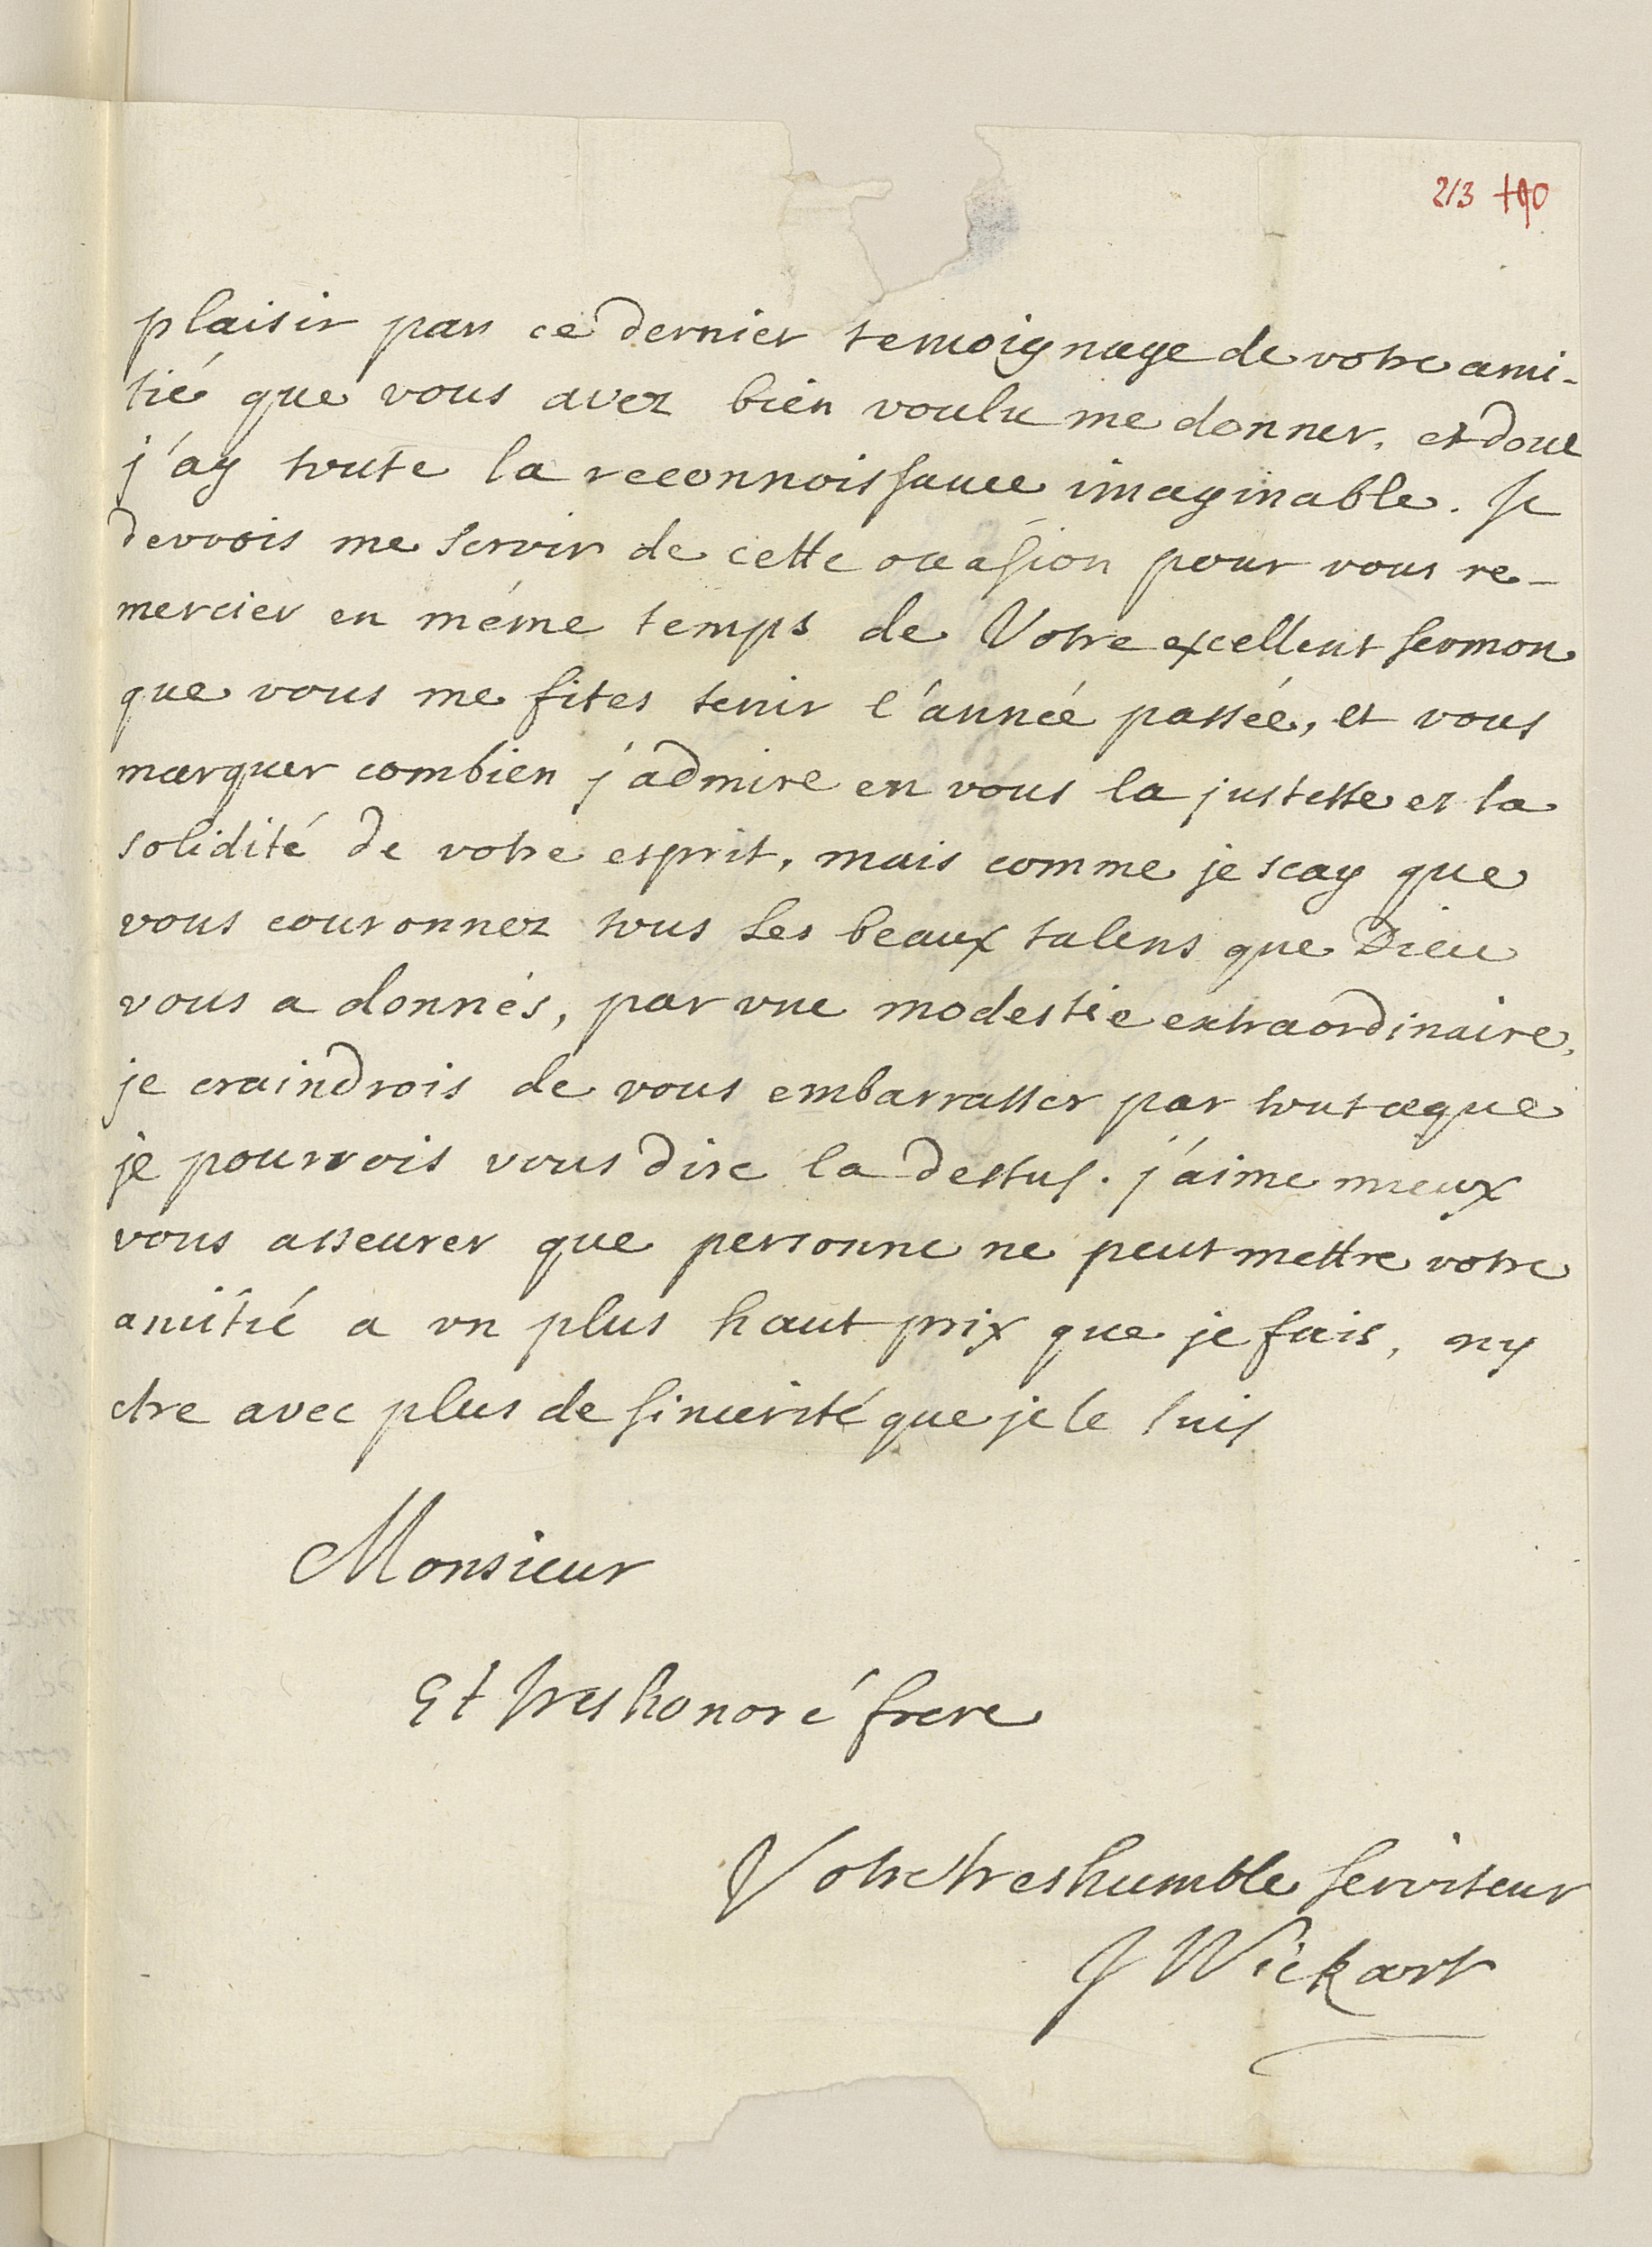 213 190
plaisir par ce dernier temoignage de votre ami-
tié que vous avez bien voulu me donner, et dont
j'ay toute la reconnoissance imaginable. Je
devrois me servir de cette occasion pour vous re-
mercier en méme temps de Votre excellent sermon
que vous me fites tenir l'année passée, et vous
marquer combien j'admire en vous la justesse et la
solidité de votre esprit, mais comme je scay que
vous couronnez tous les beaux talens que Dieu
vous a donnés, par vne modestie extraordinaire,
je craindrois de vous embarrasser par tout ce que
je pourrois vous dire la dessus. j'aime mieux
vous asseurer que personne ne peut mettre votre
amitié a vn plus haut prix que je fais, ny
etre avec plus de sincerité que je le suis
Monsieur
Et tres honoré frere
Votre tres humble serviteur
J Wickart